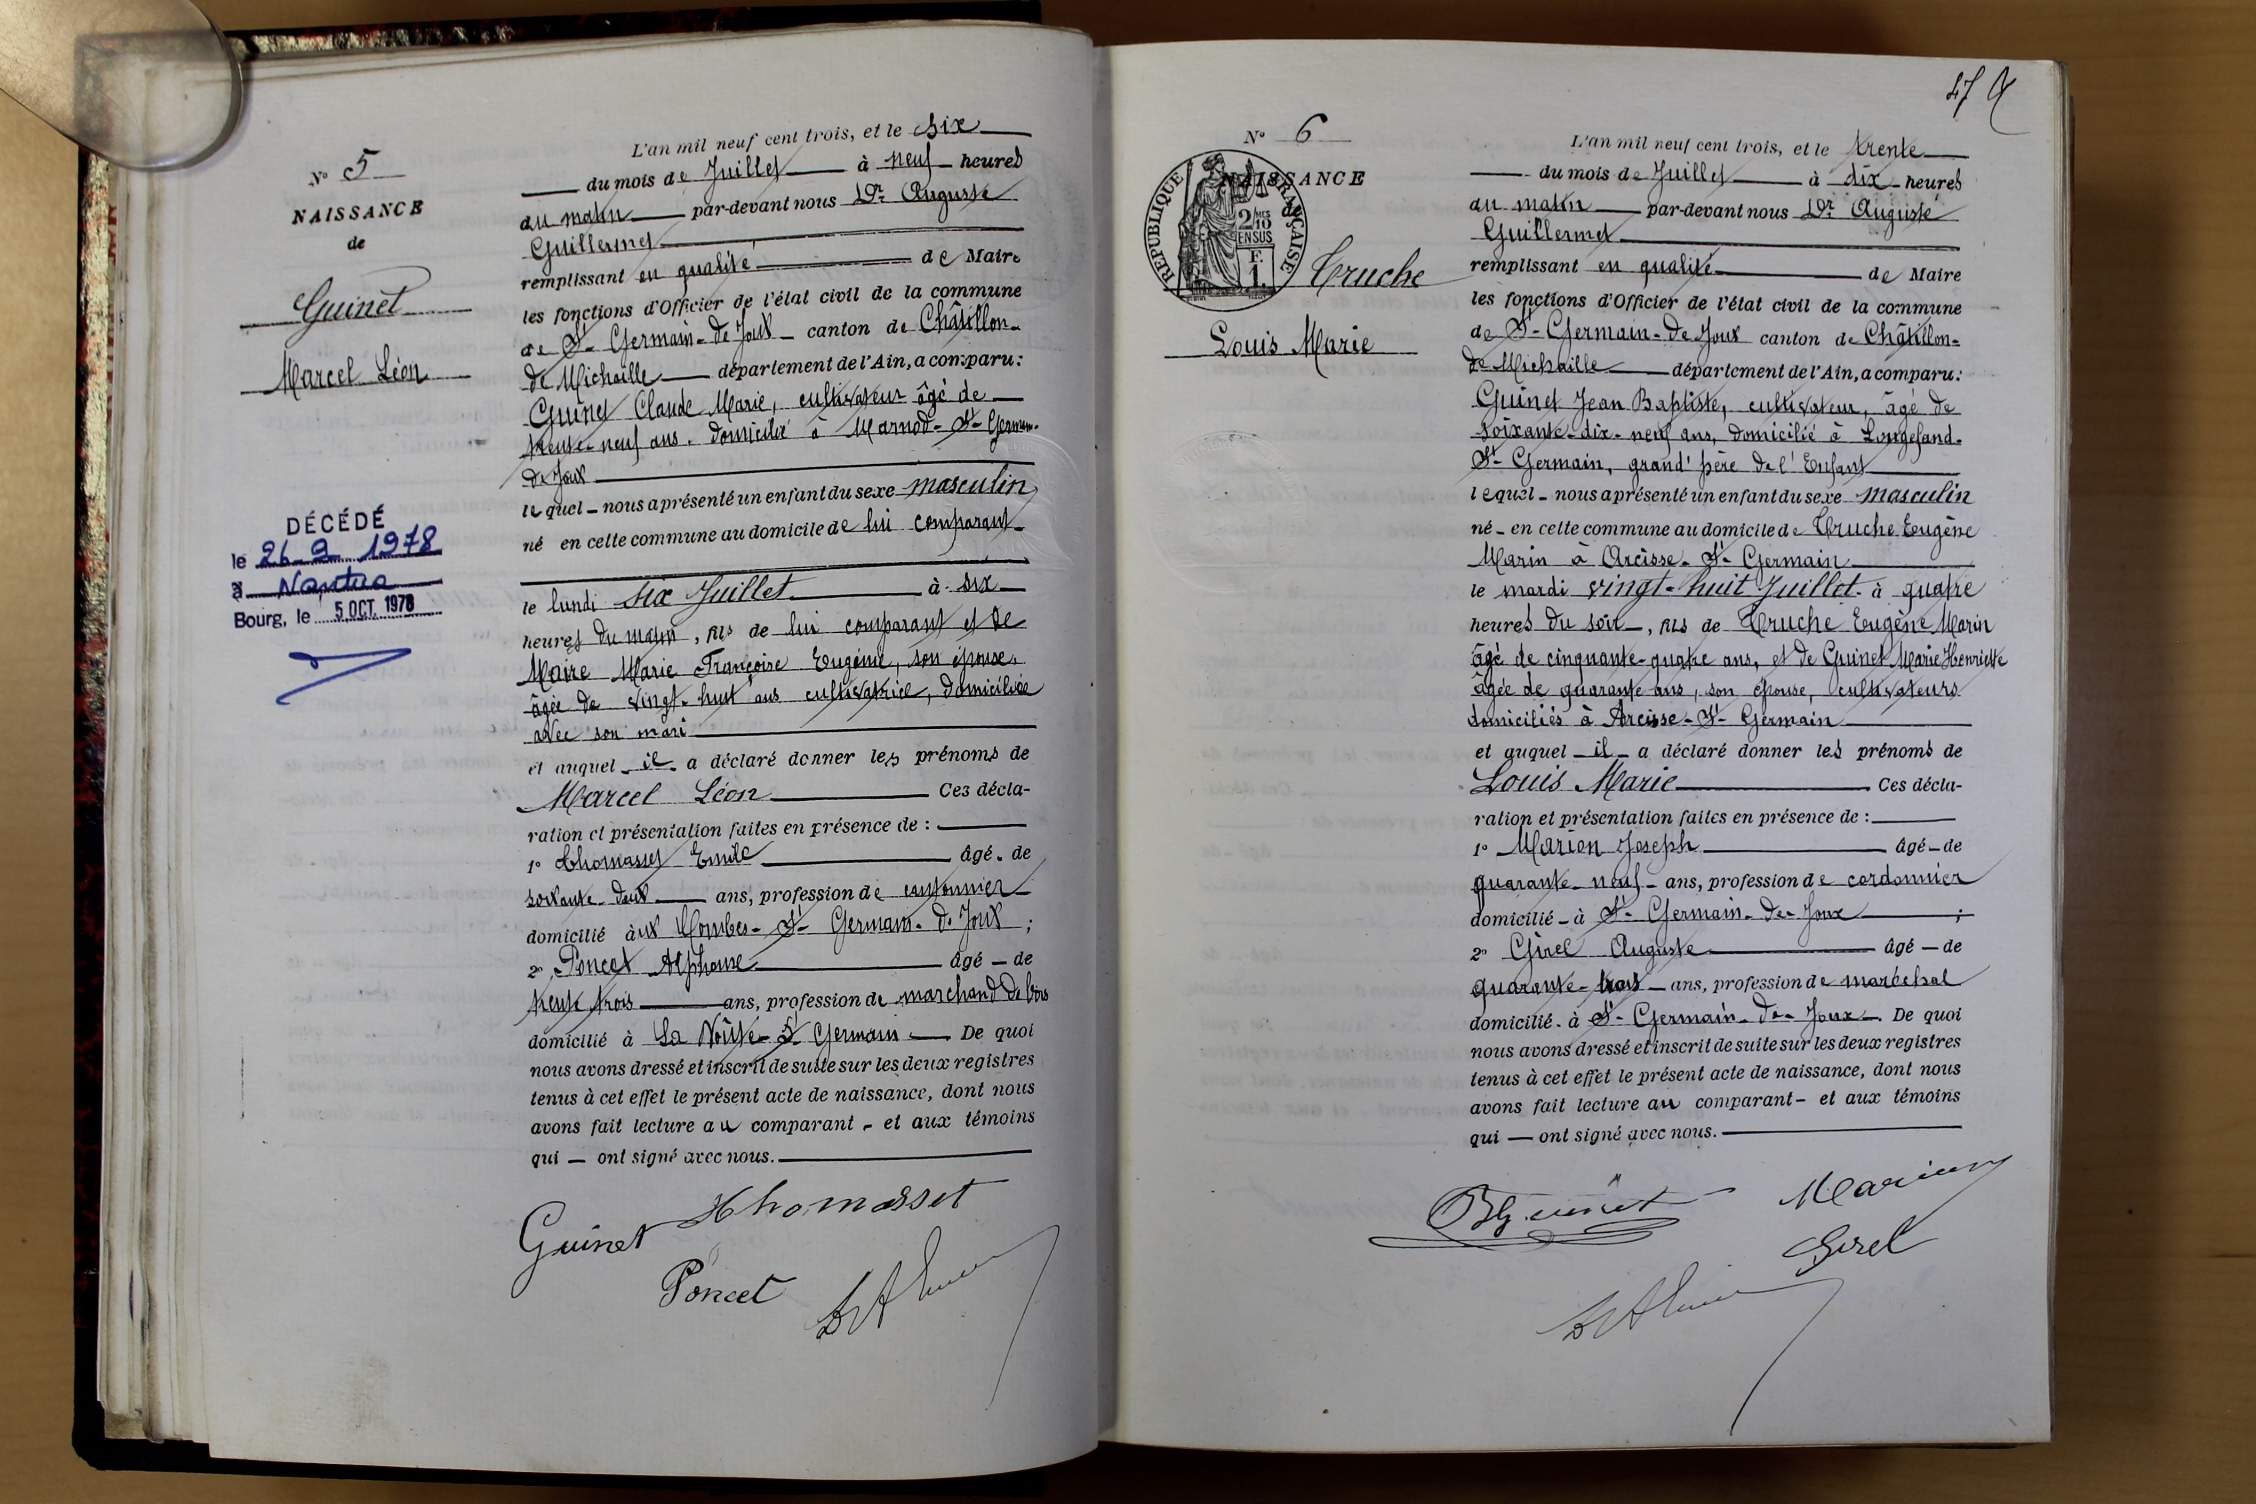 Nº 5
NAISSANCE
de
Guinet
Marcel Léon
DÉCÉDÉ
le 26_9_1978
à Nantua
Bourg, le 5.OCT.1978
L'an mil neuf cent trois, et le Six
du mois de Juillet à neuf heures
du matin par-devant nous Dr. Auguste
Guillermet
remplissant en qualité de Maire
les fonctions d'Officier de l'état civil de la commune
de St-Germain-de Joux - canton de Châtillon-
de Michaille département de l'Ain, a comparu:
Guinet Claude Marie, cultivateur âgé de
trente-neuf ans, domicilié à Marnod-St-Germain-
de Joux
lequel - nous a présenté un enfant du sexe masculin
né en cette commune au domicile de lui comparant
le lundi six Juillet à six
heures du matin, fils de lui comparant et de
Moire Marie Françoise Eugénie, son épouse,
âgée de vingt-huit ans cultivatrice, domiciliée
avec son mari
et auquel il a déclaré donner les prénoms de
Marcel Léon Ces décla-
ration et présentation faites en présence de :
1º Thomasset Emile âgé - de
soixante-deux ans, profession de cantonnier
domicilié aux Combes-St-Germain-de Joux ;
2º Poncet Alphonse âgé - de
trente trois ans, profession de marchand de bois
domicilié à La St Germain De quoi
nous avons dressé et inscrit de suite sur les deux registres
tenus à cet effet le présent acte de naissance, dont nous
avons fait lecture au comparant - et aux témoins
qui — ont signé avec nous.
Guinet Thomasset
Poncet
47
Nº 6
NAISSANCE
de
RÉPUBLIQUE FRANÇAISE
2/10 MES
EN SUS
F.
1.
Truche
Louis Marie
L'an mil neuf cent trois, et le trente
du mois de Juillet à dix heures
du matin par-devant nous Dr. Auguste
Guillermet
remplissant en qualité de Maire
les fonctions d'Officier de l'état civil de la commune
de St-Germain-de Joux canton de Châtillon-
de Michaille département de l'Ain, a comparu:
Guinet Jean Baptiste, cultivateur, âgé de
soixante-dix-neuf ans, domicilié à Longefand-
St-Germain, grand'père de l'Enfant
lequel - nous a présenté un enfant du sexe masculin
né - en cette commune au domicile de Truche Eugène
Marin à Arcisse-St-Germain
le mardi vingt-huit Juillet à quatre
heures du soir, fils de Truche Eugène Marin
âgé de cinquante-quatre ans, et de Guinet Marie Henriette
âgée de quarante ans, son épouse, cultivateurs
domiciliés à Arcisse-St-Germain
et auquel il a déclaré donner les prénoms de
Louis Marie Ces décla-
ration et présentation faites en présence de :
1º Marion Joseph âgé - de
quarante-neuf - ans, profession de cordonnier
domicilié - à St-Germain-de-Joux ;
2º Girel Auguste âgé — de
quarante-trois - ans, profession de maréchal
domicilié - à St-Germain-de-Joux. De quoi
nous avons dressé et inscrit de suite sur les deux registres
tenus à cet effet le présent acte de naissance, dont nous
avons fait lecture au comparant - et aux témoins
qui — ont signé avec nous.
Guinet Marion
Girel